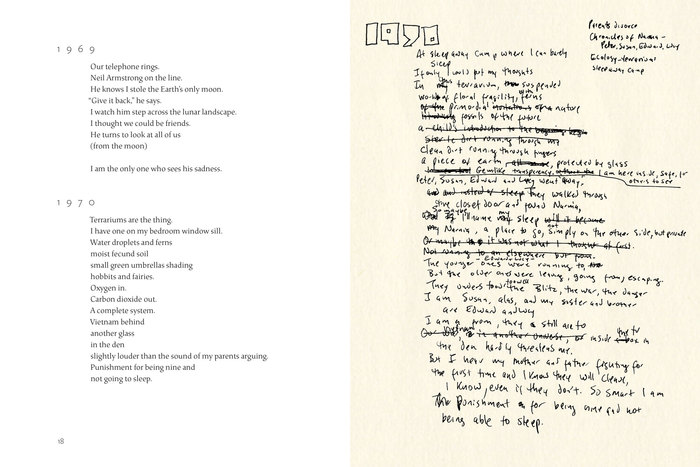 1969
Our telephone rings.
Neil Armstrong on the line.
He knows I stole the Earth's only moon.
"Give it back," he says.
I watch him step across the lunar landscape.
I thought we could be friends.
He turns to look at all of us
(from the moon)
I am the only one who sees his sadness.
1970
Terrariums are the thing.
I have one on my bedroom window sill.
Water droplets and ferns
moist fecund soil
small green umbrellas shading
hobbits and fairies.
Oxygen in.
Carbon dioxide out.
A complete system.
Vietnam behind
another glass
in the den
slightly louder than the sound of my parents arguing.
Punishment for being nine and
not going to sleep.
18
1970
Parents divorce
Chronicles of Narnia –
Peter, Susan, Edward, Lucy
Ecology – terrarium
sleepaway camp
At sleep away camp where I can barely
sleep
If only I could put my thoughts
In this terrarium, suspended
world of floral fragility, with ferns
of the primordial of a nature
fossils of the future
a child's introduction to the beginning
dirt running through my
Clean dirt running through fingers
a piece of earth, protected by glass
Gemlike transparency, I am here inside, safe, for
others to see
Peter, Susan, Edward and Lucy went away,
and instead of sleep they walked through
the closet door and found Narnia,
So maybe I'll name my sleep will it become
my Narnia, a place to go, simply on the other side, but private
Or maybe it was not what I thought at first.
Not running to an elsewhere but from.
The younger ones were running to,
But the older ones were leaving, going from, escaping.
They understood too well the Blitz, the war, the danger
I am Susan, alas, and my sister and brother
are Edward and Lucy
I am from, they still are to
Vietnam is another universe, inside the tv box in
the den hardly threatens me.
But I hear my mother and father fighting for
the first time and I know they will cleave,
I know, even if they don't. So smart I am
The Punishment for being nine and not
being able to sleep.